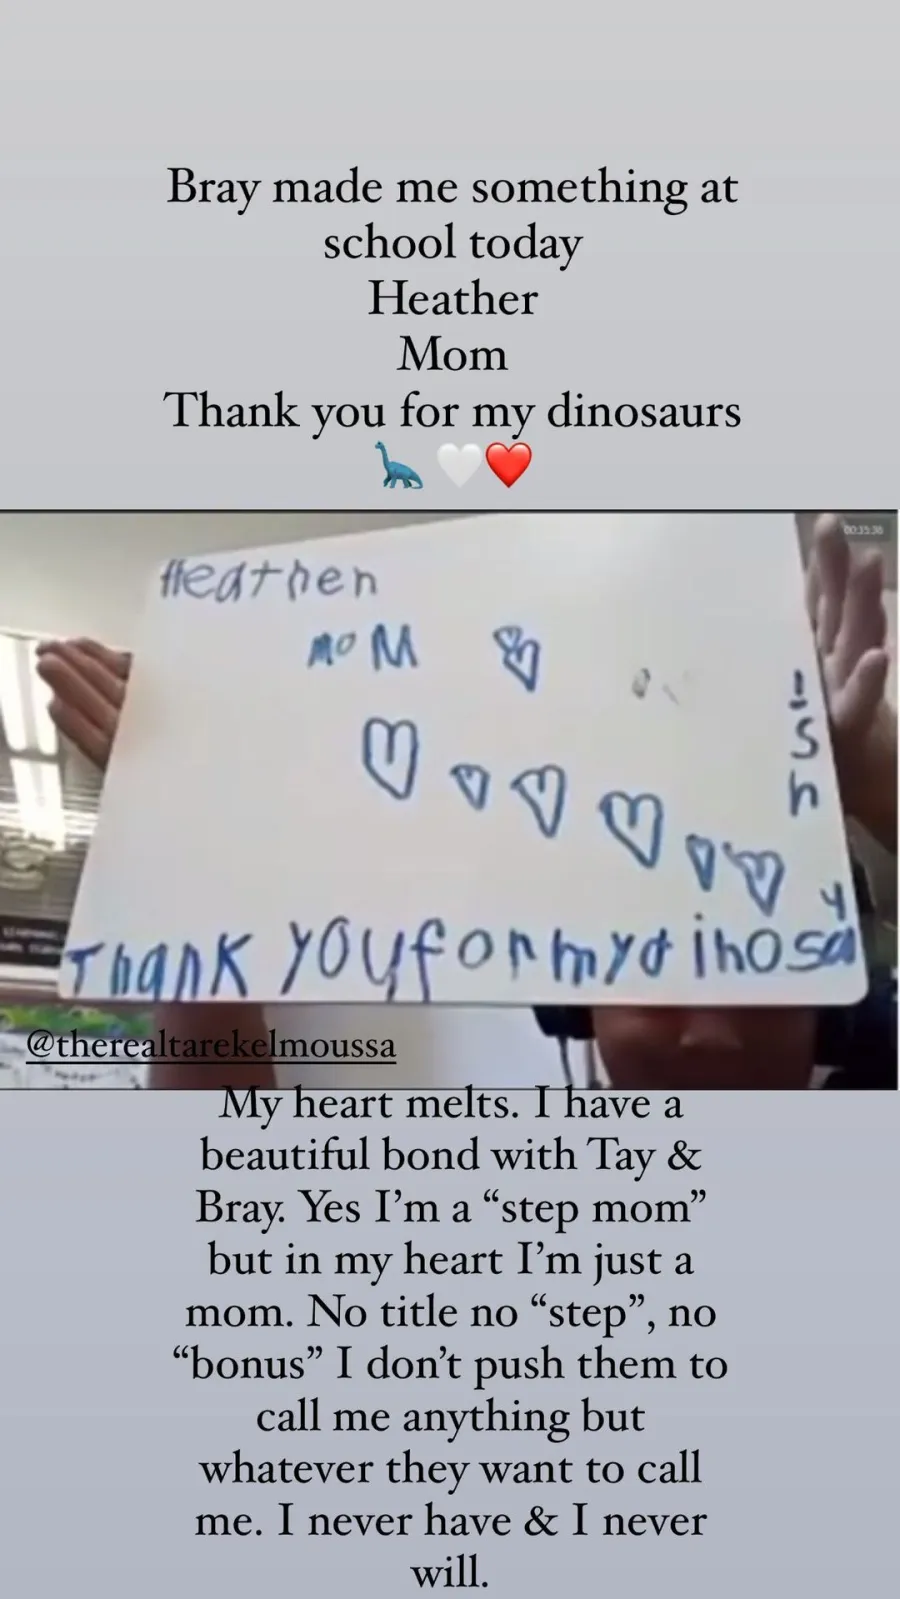 Bray made me something at
school today
Heather
Mom
Thank you for my dinosaurs
🦕 🤍❤️
00:35:36
Heather
MOM
Thank you for my dinosa
@therealtarekelmoussa
My heart melts. I have a
beautiful bond with Tay &
Bray. Yes I’m a “step mom”
but in my heart I’m just a
mom. No title no “step”, no
“bonus” I don’t push them to
call me anything but
whatever they want to call
me. I never have & I never
will.